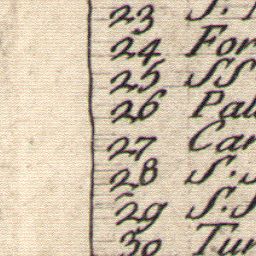 23 S.
24 For
25 SS
26 Pal
27 Car
28 S. S
29 S.S
30 Tur